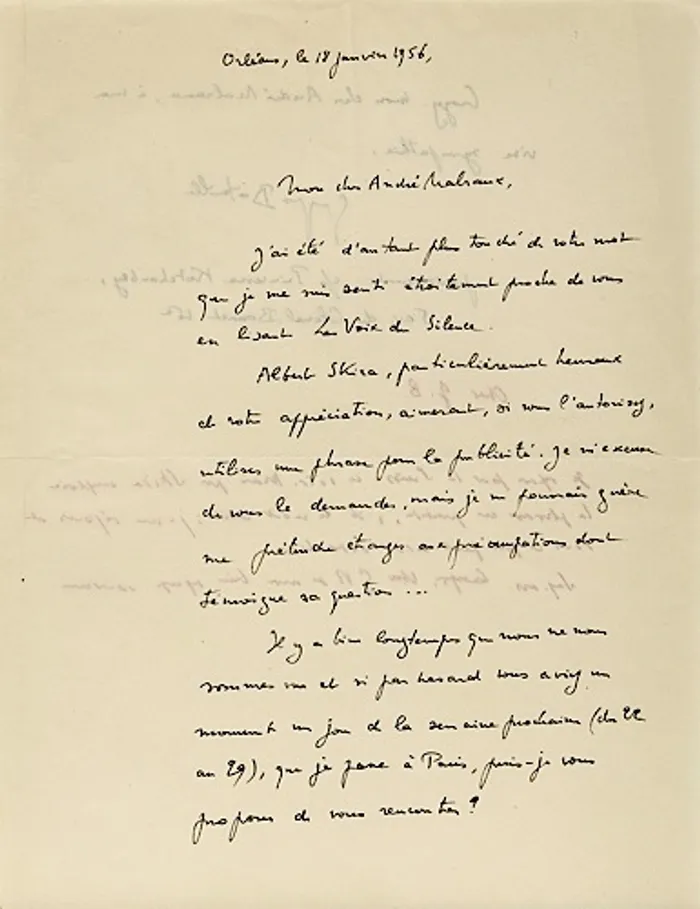 Orléans, le 18 janvier 1956,
Mon cher André Malraux,
J'ai été d'autant plus touché de votre mot
que je me suis senti étroitement proche de vous
en lisant Les Voix du Silence.
Albert Skira, particulièrement heureux
de votre appréciation, aimerait, si vous l'autorisez,
utiliser une phrase pour la publicité. Je m'excuse
de vous le demander, mais je ne pourrais guère
me prétendre étranger aux préoccupations dont
témoigne sa question ...
Il y a bien longtemps que nous ne nous
sommes vus et si par hasard vous aviez un
moment un jour de la semaine prochaine (du 22
au 29), que je passe à Paris, puis-je vous
proposer de vous rencontrer ?